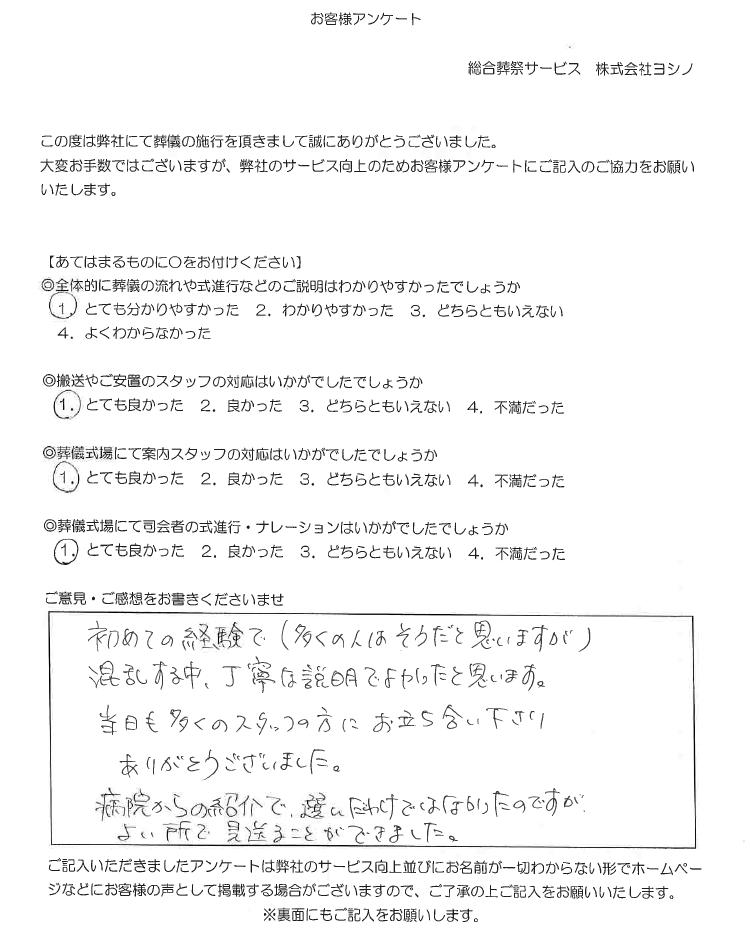 お客様アンケート
総合葬祭サービス　株式会社ヨシノ
この度は弊社にて葬儀の施行を頂きまして誠にありがとうございました。
大変お手数ではございますが、弊社のサービス向上のためお客様アンケートにご記入のご協力をお願い
いたします。
【あてはまるものに〇をお付けください】
◎全体的に葬儀の流れや式進行などのご説明はわかりやすかったでしょうか
1．とても分かりやすかった　2．わかりやすかった　3．どちらともいえない
4．よくわからなかった
◎搬送やご安置のスタッフの対応はいかがでしたでしょうか
1．とても良かった　2．良かった　3．どちらともいえない　4．不満だった
◎葬儀式場にて案内スタッフの対応はいかがでしたでしょうか
1．とても良かった　2．良かった　3．どちらともいえない　4．不満だった
◎葬儀式場にて司会者の式進行・ナレーションはいかがでしたでしょうか
1．とても良かった　2．良かった　3．どちらともいえない　4．不満だった
ご意見・ご感想をお書きくださいませ
初めての経験で（多くの人はそうだと思いますが）
混乱する中、丁寧な説明でよかったと思います。
当日も多くのスタッフの方にお立ち合い下さり
ありがとうございました。
病院からの紹介で、選んだわけではなかったのですが、
よい所で見送ることができました。
ご記入いただきましたアンケートは弊社のサービス向上並びにお名前が一切わからない形でホームペー
ジなどにお客様の声として掲載する場合がございますので、ご了承の上ご記入をお願いいたします。
※裏面にもご記入をお願いします。